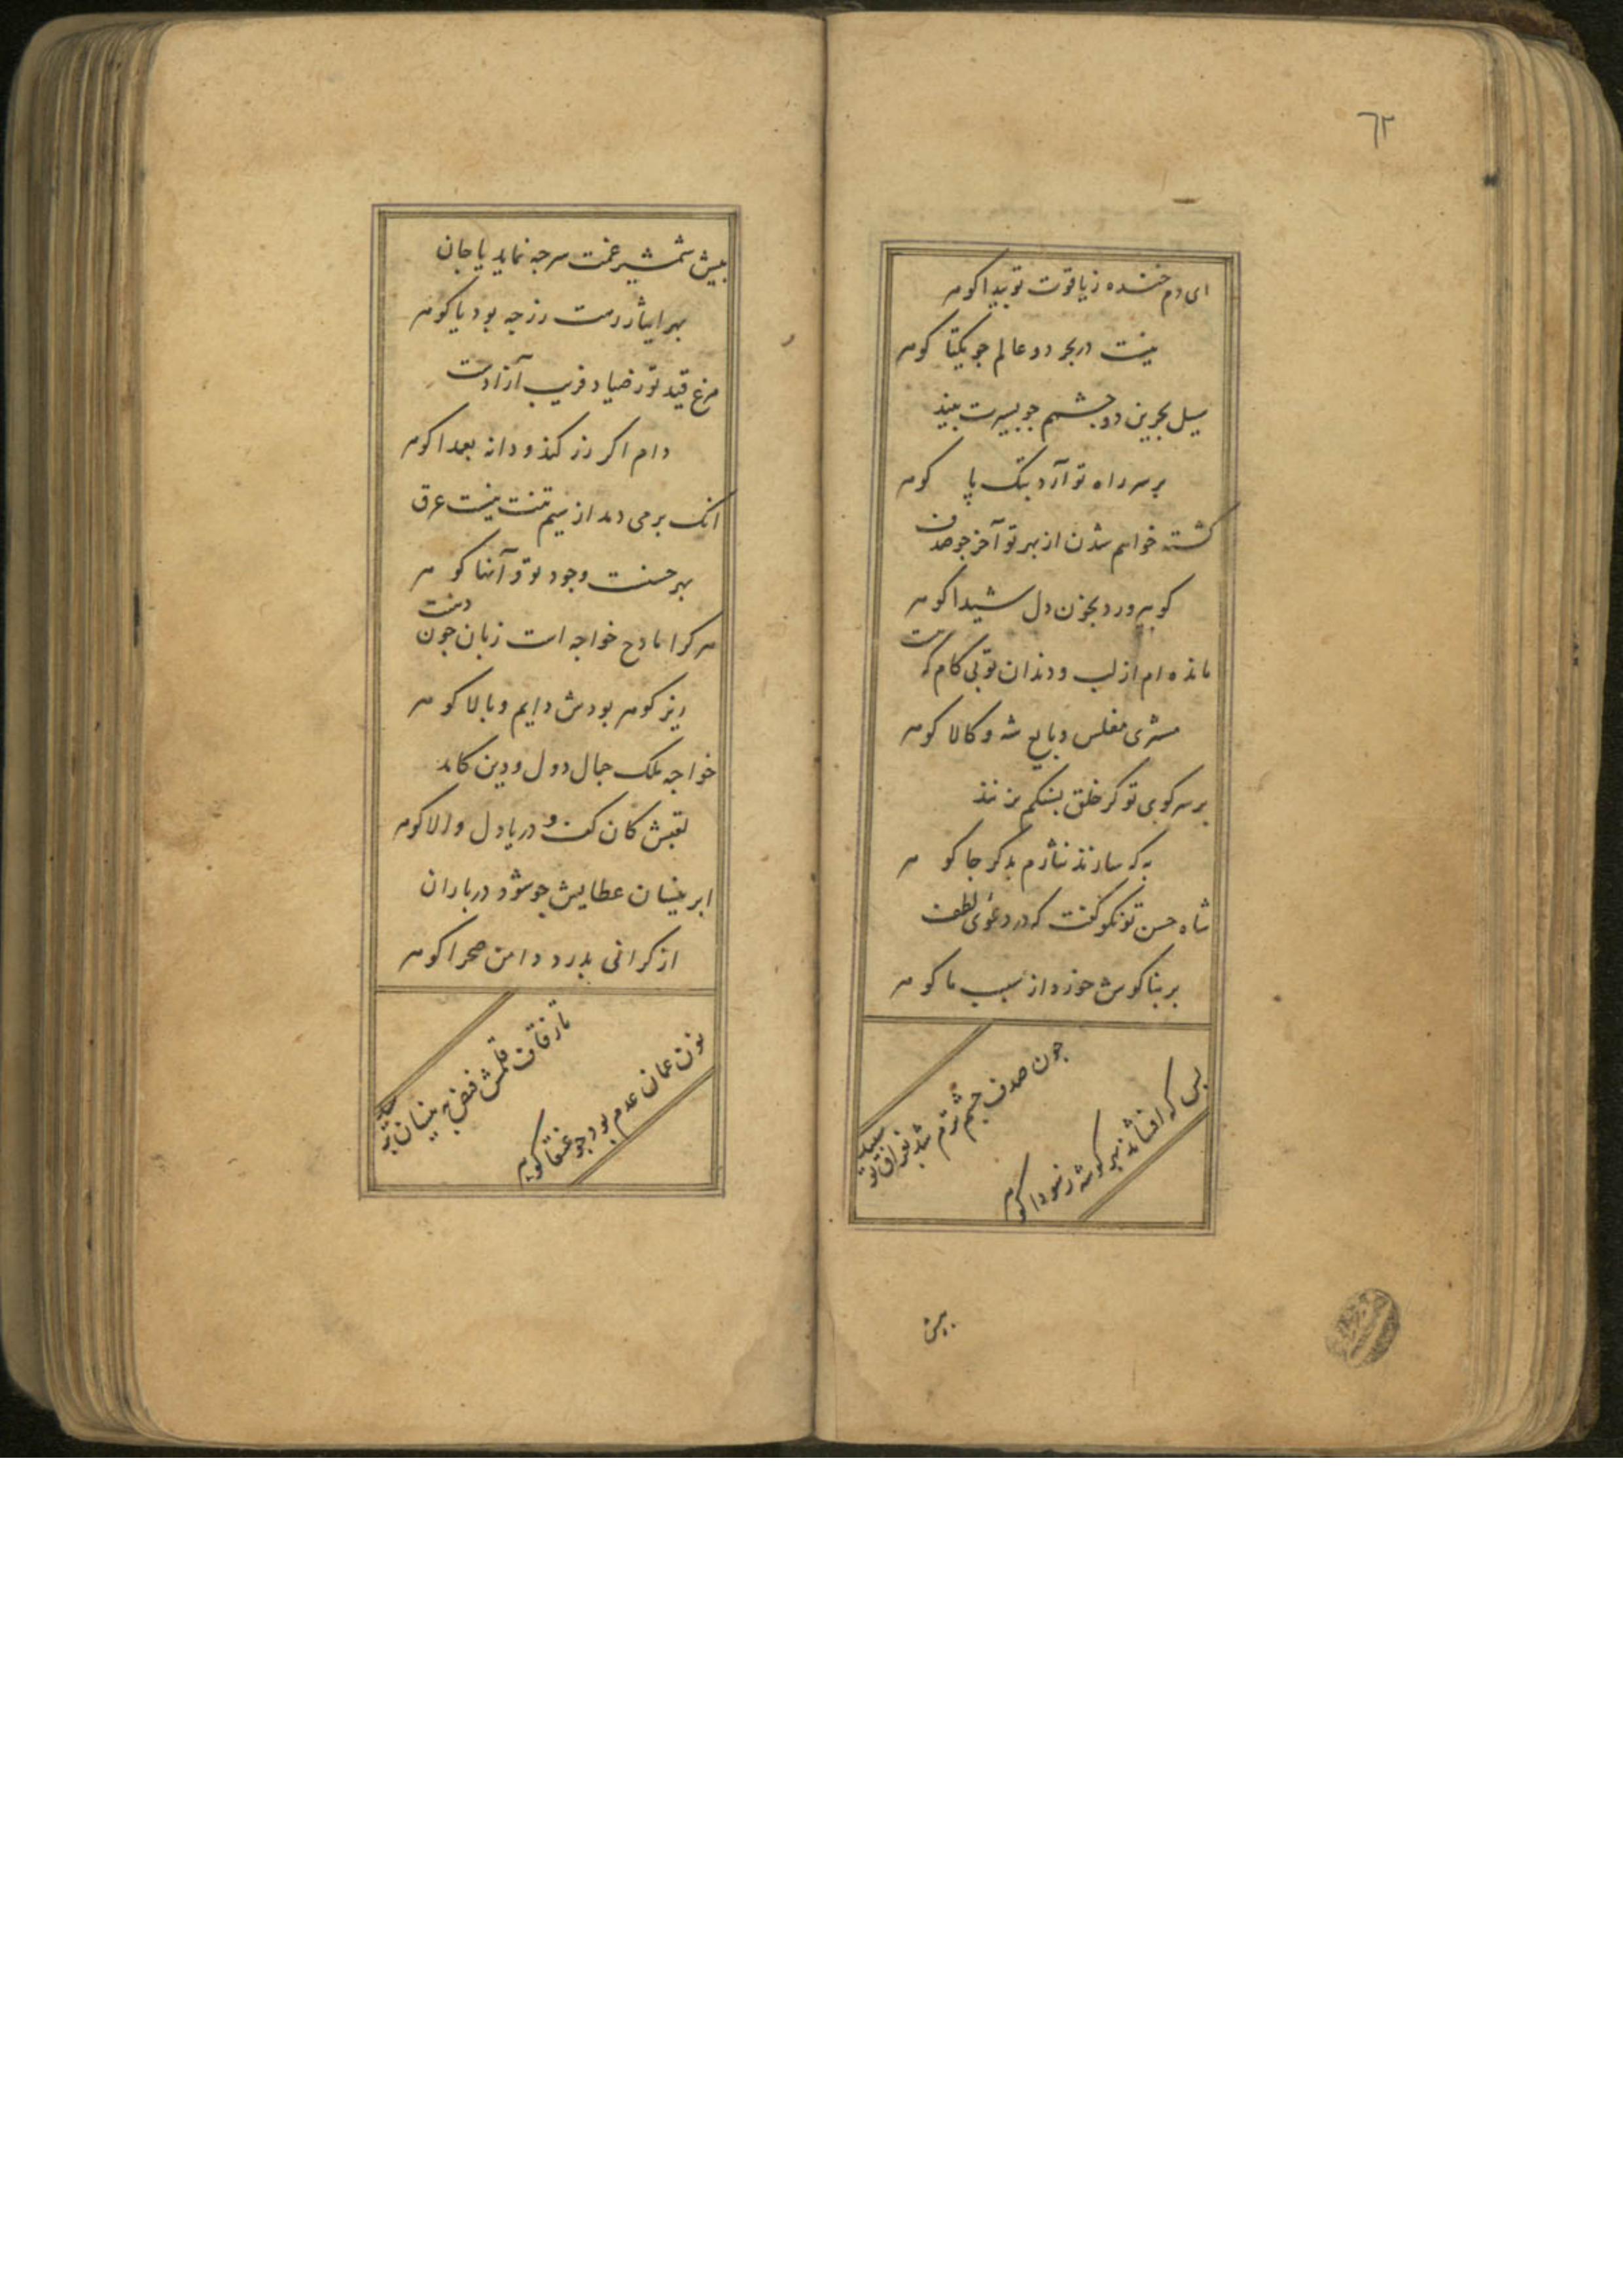 ٦٣
ای دم خنده ز یاقوت تو پیدا کوهر
نیست در بحر دو عالم جو تو یکتا کوهر
سیل بحرین دو جشمم جو بسیرت بیند
بر سر راه تو آرد بتک پا کوهر
کشته خواهم شدن از بهر تو آخر جو صدف
کوبرورد بخون دل شیدا کوهر
مانده ام از لب و دندان تو بی کام که هست
مشتری مفلس و بایع شه و کالا کوهر
بر سر کوی تو کر خلق بسنکم بزنند
به که سازند نثارم بدکر جا کوهر
شاه حسن تو نکو کفت که در دعوی لطف
بر بناکوش خورد از سبب ما کوهر
جون صدف جشم ترم شد بفراق تو سپید
بس که افشاند بهر کوشه ز سودا کوهر
بیش
بیش شمشیر غمت سر جه نماید یا جان
بهر ایثار رهت زر جه بود یا کوهر
مرغ قید تو ز صیاد فریب آزادست
دام اکر زر کند و دانه بعمدا کوهر
انک بر می دمد از سیم تنت نیست عرق
بهر حسنت وجود تو و آنها کوهر
هر کرا مادح خواجه است زبان جون دهنت
ریز کوهر بودش دایم و بالا کوهر
خواجه ملک جمال دول و دین کامد
لقبش کان کف و دریا دل و والا کوهر
ابر نیسان عطایش جو شود درباران
از کرانی بدرد دامن صحرا کوهر
تا ز قاف قلمش فیض به نیسان
نون عمان عدم بود جو عنقا کوهر